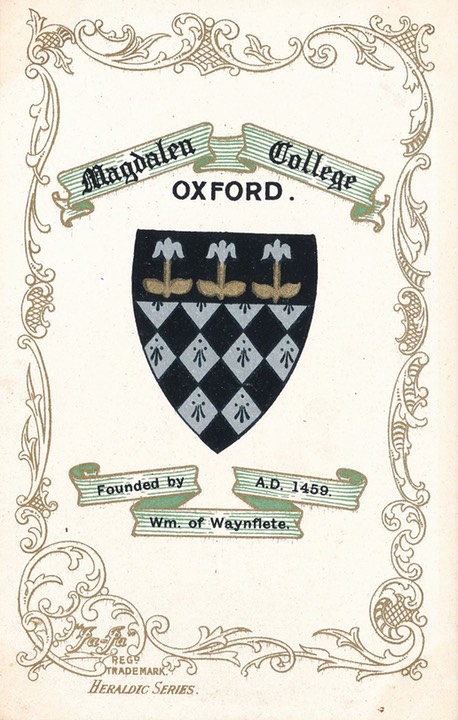 Magdalen College
OXFORD.
Founded by A.D. 1459.
Wm. of Waynflete.
"Ja-Ja"
REGD
TRADEMARK.
HERALDIC SERIES.